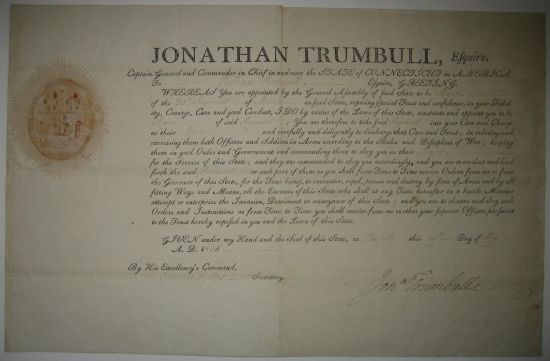 JONATHAN TRUMBULL, Esquire.
Captain-General and Commander in Chief in and over the STATE of CONNECTICUT in AMERICA.
To Esquire, GREETING.
WHEREAS You are appointed by the General Assembly of said State to be
of the Regiment of in said State, reposing special Trust and Confidence, in your Fidel-
ity, Courage, Care and good Conduct, I DO by virtue of the Laws of this State, constitute and appoint you to be
of said Regiment. You are therefore to take said into your Care and Charge
as their and carefully and diligently to discharge that Care and Trust; in ordering and
exercising them both Officers and Soldiers in Arms according to the Rules and Discipline of War; keeping
them in good Order and Government and commanding them to obey you as their
for the Service of this State; and they are commanded to obey you accordingly, and you are to conduct and lead
forth the said or such part of them as you shall from Time to Time receive Orders from me or from
the Governor of this State, for the Time being, to encounter, repel, pursue and destroy by force of Arms and by all
fitting Ways and Means, all the Enemies of this State who shall at any Time hereafter in a hostile Manner
attempt or enterprize the Invasion, Detriment or annoyance of this State; and you are to observe and obey such
Orders and Instructions as from Time to Time you shall receive from me or other your Superior Officers, pursuant
to the Trust hereby reposed in you and the Laws of this State.
GIVEN under my Hand and the Seal of this State, at this Day of May
A. D.
By His Excellency's Command,
Secretary.
Jonᵃ Trumbull